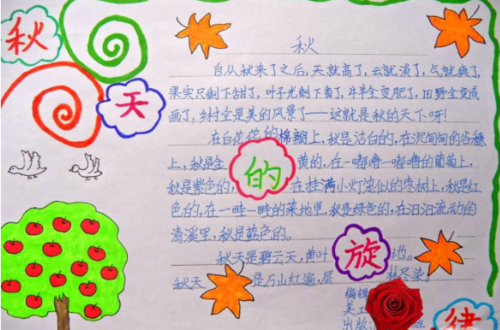 秋
天
的
旋
律
秋
自从秋来了之后,天就高了,云就淡了,气就爽了,
果实只剩下甜了,叶子光剩下黄了,牛羊全变肥了,田野全变成
画了,乡村全是美的风景了——这就是秋的天下呀!
在白花花的棉瓣上,秋是洁白的,在沉甸甸的谷穗
上,秋是金 黄的,在一嘟噜一嘟噜的葡萄上,
秋是紫色的, 在挂满小灯笼似的枣树上,秋是红
色的,在一畦一畦的菜地里,秋是绿色的,在汩汩流动的
清溪里,秋是蓝色的。
秋天是碧云天,黄叶 地。
秋天 是万山红遍,层 林尽染。
编辑
美工
出版